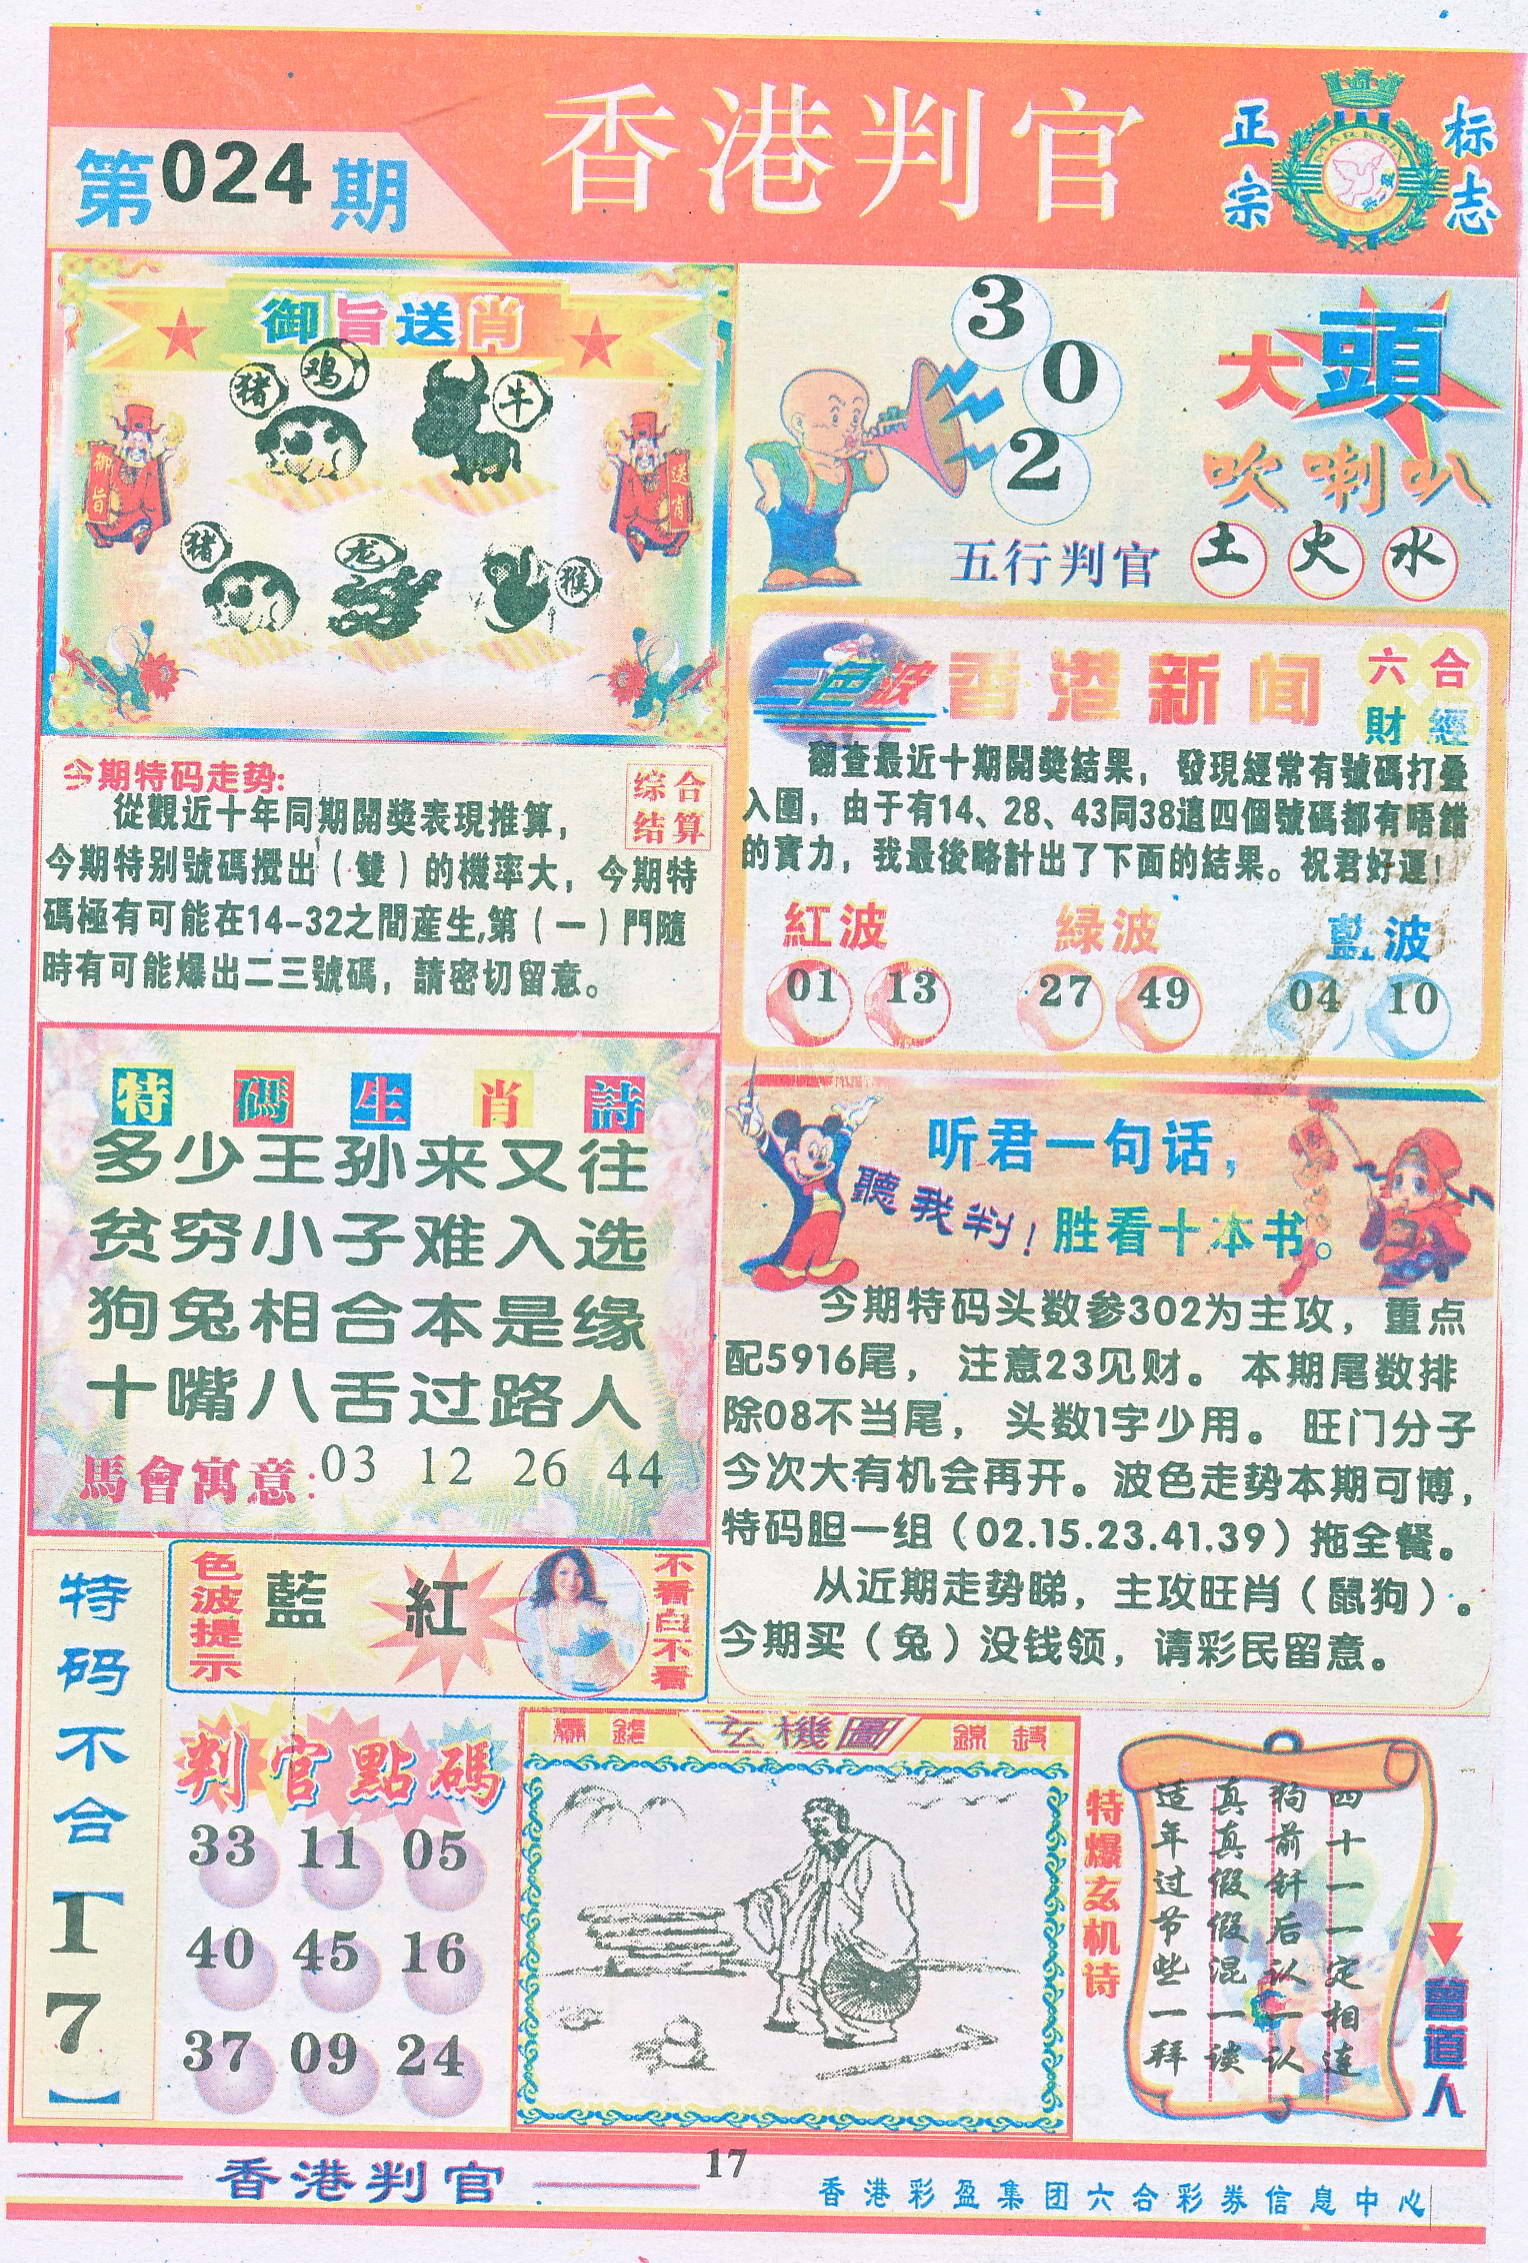 香港判官
第024期
正宗
标志
御旨送肖
猪
鸡
牛
御旨
送肖
猪
龙
猴
3
0
2
大頭
吹喇叭
五行判官
土 火 水
今期特码走势:
综合
结算
從觀近十年同期開獎表現推算，
今期特别號碼攪出（雙）的機率大，今期特
碼極有可能在14-32之間産生,第（一）門隨
時有可能爆出二三號碼，請密切留意。
三色波
香港新闻
六合
財經
翻查最近十期開獎結果，發現經常有號碼打疊
入圍，由于有14、28、43同38這四個號碼都有唔錯
的實力，我最後略計出了下面的結果。祝君好運！
紅波 緑波 藍波
01 13 27 49 04 10
特碼生肖詩
多少王孙来又往
贫穷小子难入选
狗兔相合本是缘
十嘴八舌过路人
馬會寓意:03 12 26 44
听君一句话，
聽我判！
胜看十本书。
今期特码头数参302为主攻，重点
配5916尾，注意23见财。本期尾数排
除08不当尾，头数1字少用。旺门分子
今次大有机会再开。波色走势本期可博，
特码胆一组（02.15.23.41.39）拖全餐。
从近期走势睇，主攻旺肖（鼠狗）。
今期买（兔）没钱领，请彩民留意。
特码不合【17】
色波提示
藍 紅
不看白不看
判官點碼
33 11 05
40 45 16
37 09 24
玄機圖
特爆玄机诗
四十一一定相连
狗前钎后认一认
真真假假混一谈
适年过节些一拜
曾道人
香港判官
17
香港彩盈集团六合彩券信息中心